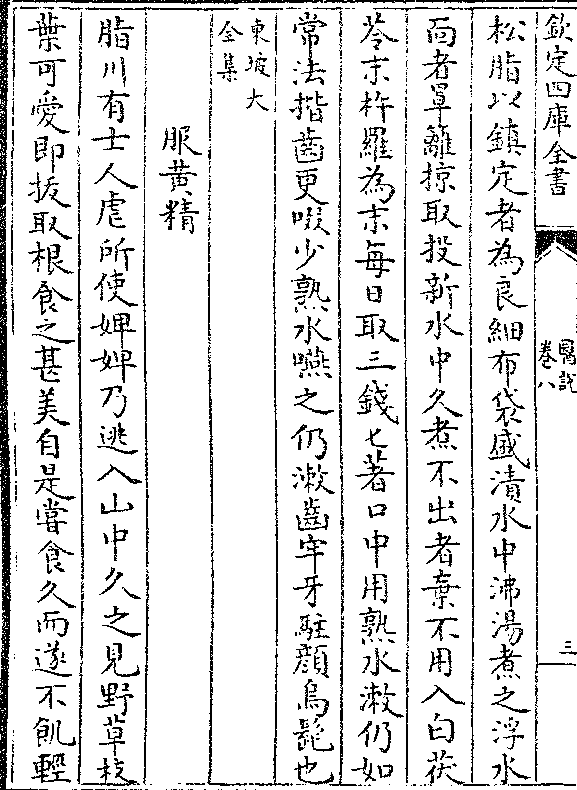 欽定四庫全書
醫說
卷八
三
松脂以鎮定者為良細布袋盛漬水中沸湯煮之浮水
靣者罩籬掠取投新水中久煮不出者棄不用入白茯
苓末杵羅為末每日取三錢匕著口中用熟水漱仍如
常法揩齒更啜少熟水嚥之仍漱齒牢牙駐顔烏髭也
東坡大
全集
服黄精
脂川有士人虐所使婢婢乃逃入山中久之見野草枝
葉可愛即拔取根食之甚美自是嘗食久而遂不飢輕